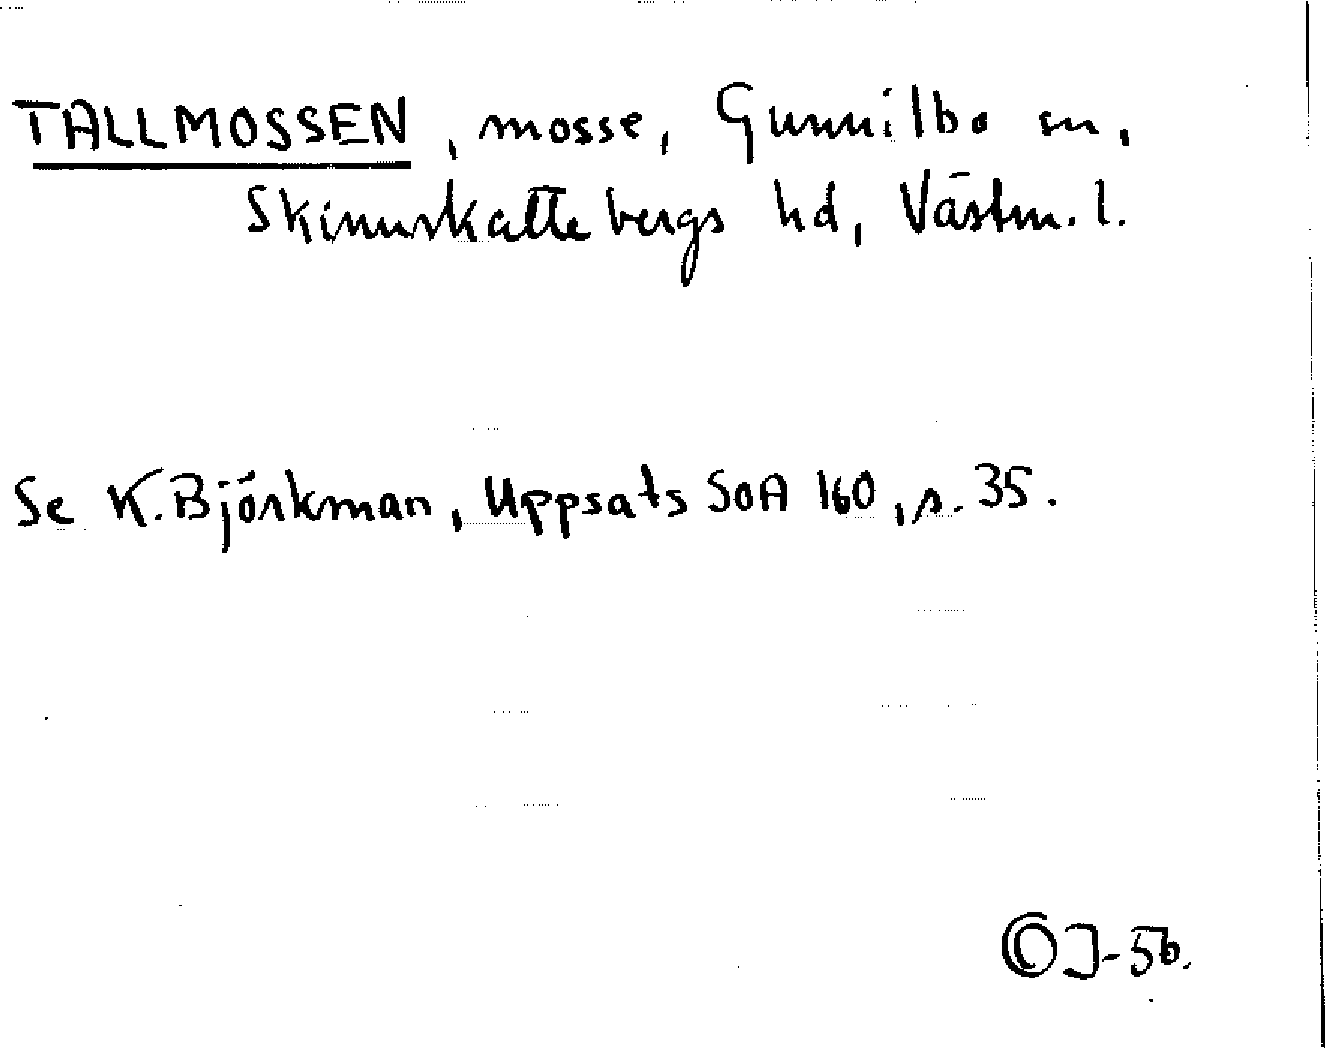 TALLMOSSEN, mosse, Gunnilbo sn,
Skinnskattebergs hd, Västm. l.
Se K. Björkman, Uppsats SOA 160, s. 35.
ⒸJ-56.